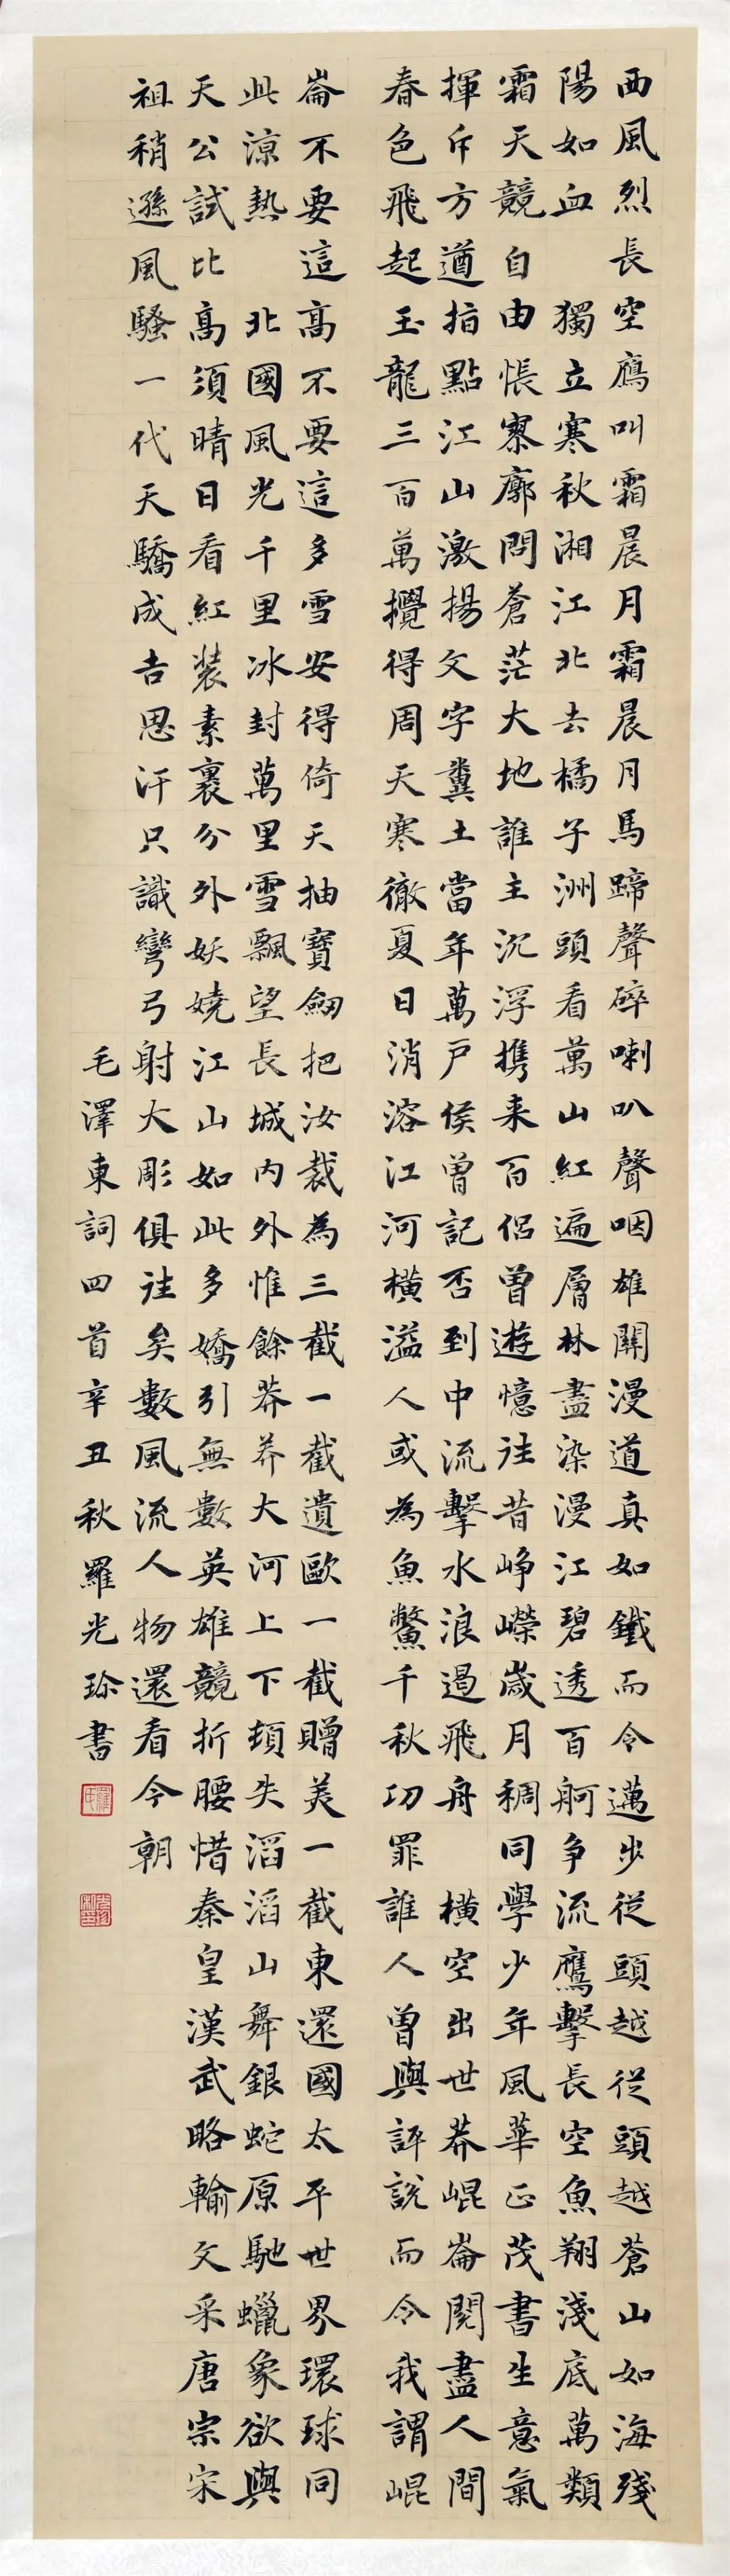 西風烈長空鴈叫霜晨月霜晨月馬蹄聲碎喇叭聲咽雄關漫道真如鐵而令邁步從頭越從頭越蒼山如海殘
陽如血 獨立寒秋湘江北去橘子洲頭看萬山紅遍層林盡染漫江碧透百舸爭流鷹擊長空魚翔淺底萬類
霜天競自由悵寥廓問蒼茫大地誰主沉浮攜来百侶曾遊憶往昔崢嶸歲月稠同學少年風華正茂書生意氣
揮斥方遒指點江山激揚文字糞土當年萬戶侯曾記否到中流擊水浪遏飛舟 橫空出世莽崐崙閱盡人間
春色飛起玉龍三百萬攪得周天寒徹夏日消溶江河橫溢人或為魚鱉千秋功罪誰人曾與評說而令我謂崐
崙不要這高不要這多雪安得倚天抽寶劒把汝裁為三截一截遺歐一截贈美一截東還國太平世界環球同
此涼熱 北國風光千里冰封萬里雪飄望長城內外惟餘莽莽大河上下頓失滔滔山舞銀蛇原馳蠟象欲與
天公試比高須晴日看紅裝素裹分外妖嬈江山如此多嬌引無數英雄競折腰惜秦皇漢武略輸文采唐宗宋
祖稍遜風騷一代天驕成吉思汗只識彎弓射大彫俱往矣數風流人物還看今朝
毛澤東詞四首辛丑秋羅光珍書